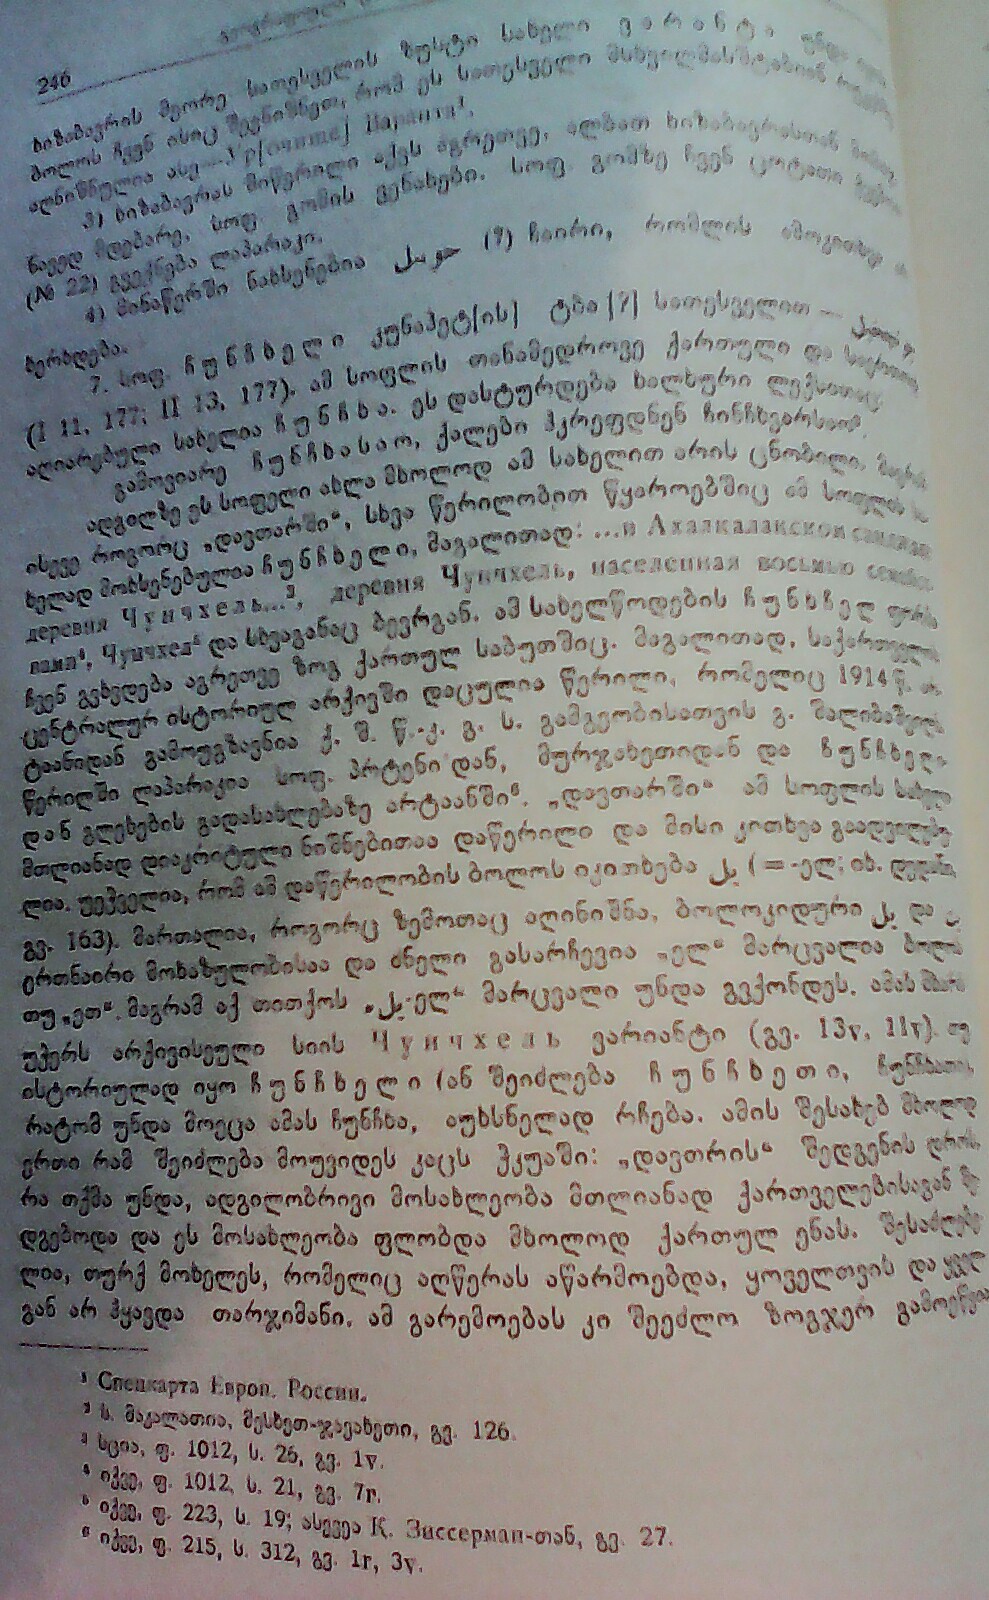 246
ხიზაბავრის მეორე სათესველის ზუსტი სახელი ვარანტი უნდა
ბოლოს ჩვენ ისიც შევნიშნეთ, რომ ეს სათესველი მსხვილმასშტაბიან
აღნიშნულია ასე
3) ხიზაბავრას მიწერილი აქვს აგრეთვე, ალბათ ხიზაბავრასთან
ნავედ მდებარე, სოფ. გომის ვენახები. სოფ. გომზე ჩვენ ცოტათი
(№ 22) გვექნება ლაპარაკი.
4) მინაწერში ნახსენებია (?) ჩაირი, რომლის ამოკითხვა
ხერხდება.
7. სოფ. ჩუნჩხელი კუნაპეტ[ის] ტბა [?] სათესველით —
(I 11, 177; II 13, 177). ამ სოფლის თანამედროვე ქართული და
აღიარებული სახელია ჩუნჩხა. ეს დასტურდება ხალხური ლექსითაც
გამოვიარე ჩუნჩხასაო, ქალები ჰკრეფდნენ ჩინჩხვარსაო².
ადგილზე ეს სოფელი ახლა მხოლოდ ამ სახელით არის ცნობილი.
ისევე როგორც „დავთარში“, სხვა წერილობით წყაროებშიც ამ სოფლის
ხელად მოხსენებულია ჩუნჩხელი, მაგალითად: ...в Ахалкалакском санджаке
деревня Чунчхель...³, деревня Чунчхель, населенная восьмью
⁴, Чунчхел⁵ და სხვაგანაც ბევრგან. ამ სახელწოდების ჩუნხჩელ ფორმა
ჩვენ გვხვდება აგრეთვე ზოგ ქართულ საბუთშიც. მაგალითად, საქართველოს
ცენტრალურ ისტორიულ არქივში დაცულია წერილი, რომელიც 1914 წ.
ტაანიდან გამოუგზავნია ქ. შ. წ.-კ. გ. ს. გამგეობისათვის გ.
წერილში ლაპარაკია სოფ. პრტენიდან, მურჯახეთიდან და ჩუნჩხელი
დან გლეხების გადასახლებაზე არტაანში⁶. „დავთარში“ ამ სოფლის სახელი
მთლიანად დიაკრიტული ნიშნებითაა დაწერილი და მისი კითხვა გაადვილებუ
ლია. უეჭველია, რომ ამ დაწერილობის ბოლოს იკითხება (= -ელ; იხ.
გვ. 163). მართალია, როგორც ზემოთაც აღინიშნა, ბოლოკიდური და
ერთნაირი მოხაზულობისაა და ძნელი გასარჩევია „ელ“ მარცვალია ბოლო
თუ „ეთ“. მაგრამ აქ თითქოს „-ელ“ მარცვალი უნდა გვქონდეს. ამას მხარს
უჭერს არქივისეული სიის Чунчхель ვარიანტი (გვ. 13v, 11v). თუ
ისტორიულად იყო ჩუნჩხელი (ან შეიძლება ჩუნჩხეთი, ჩუნჩხათი),
რატომ უნდა მოეცა ამას ჩუნჩხა, აუხსნელად რჩება. ამის შესახებ მხოლოდ
ერთი რამ შეიძლება მოუვიდეს კაცს ჭკუაში: „დავთრის“ შედგენის დროს,
რა თქმა უნდა, ადგილობრივი მოსახლეობა მთლიანად ქართველებისაგან შე
დგებოდა და ეს მოსახლეობა ფლობდა მხოლოდ ქართულ ენას. შესაძლებე
ლია, თურქ მოხელეს, რომელიც აღწერას აწარმოებდა, ყოველთვის და ყველ
გან არ ჰყავდა თარჯიმანი. ამ გარემოებას კი შეეძლო ზოგჯერ გამოეწვია
¹ Спецкарта Европ. России.
² ს. მაკალათია, მესხეთ-ჯავახეთი, გვ. 126.
³ სცია, ფ. 1012, ს. 26, გვ. 1v.
⁴ იქვე, ფ. 1012, ს. 21, გვ. 7r.
⁵ იქვე, ფ. 223, ს. 19; ასევეა К. Зиссерман-თან, გვ. 27.
⁶ იქვე, ფ. 215, ს. 312, გვ. 1r, 3v.